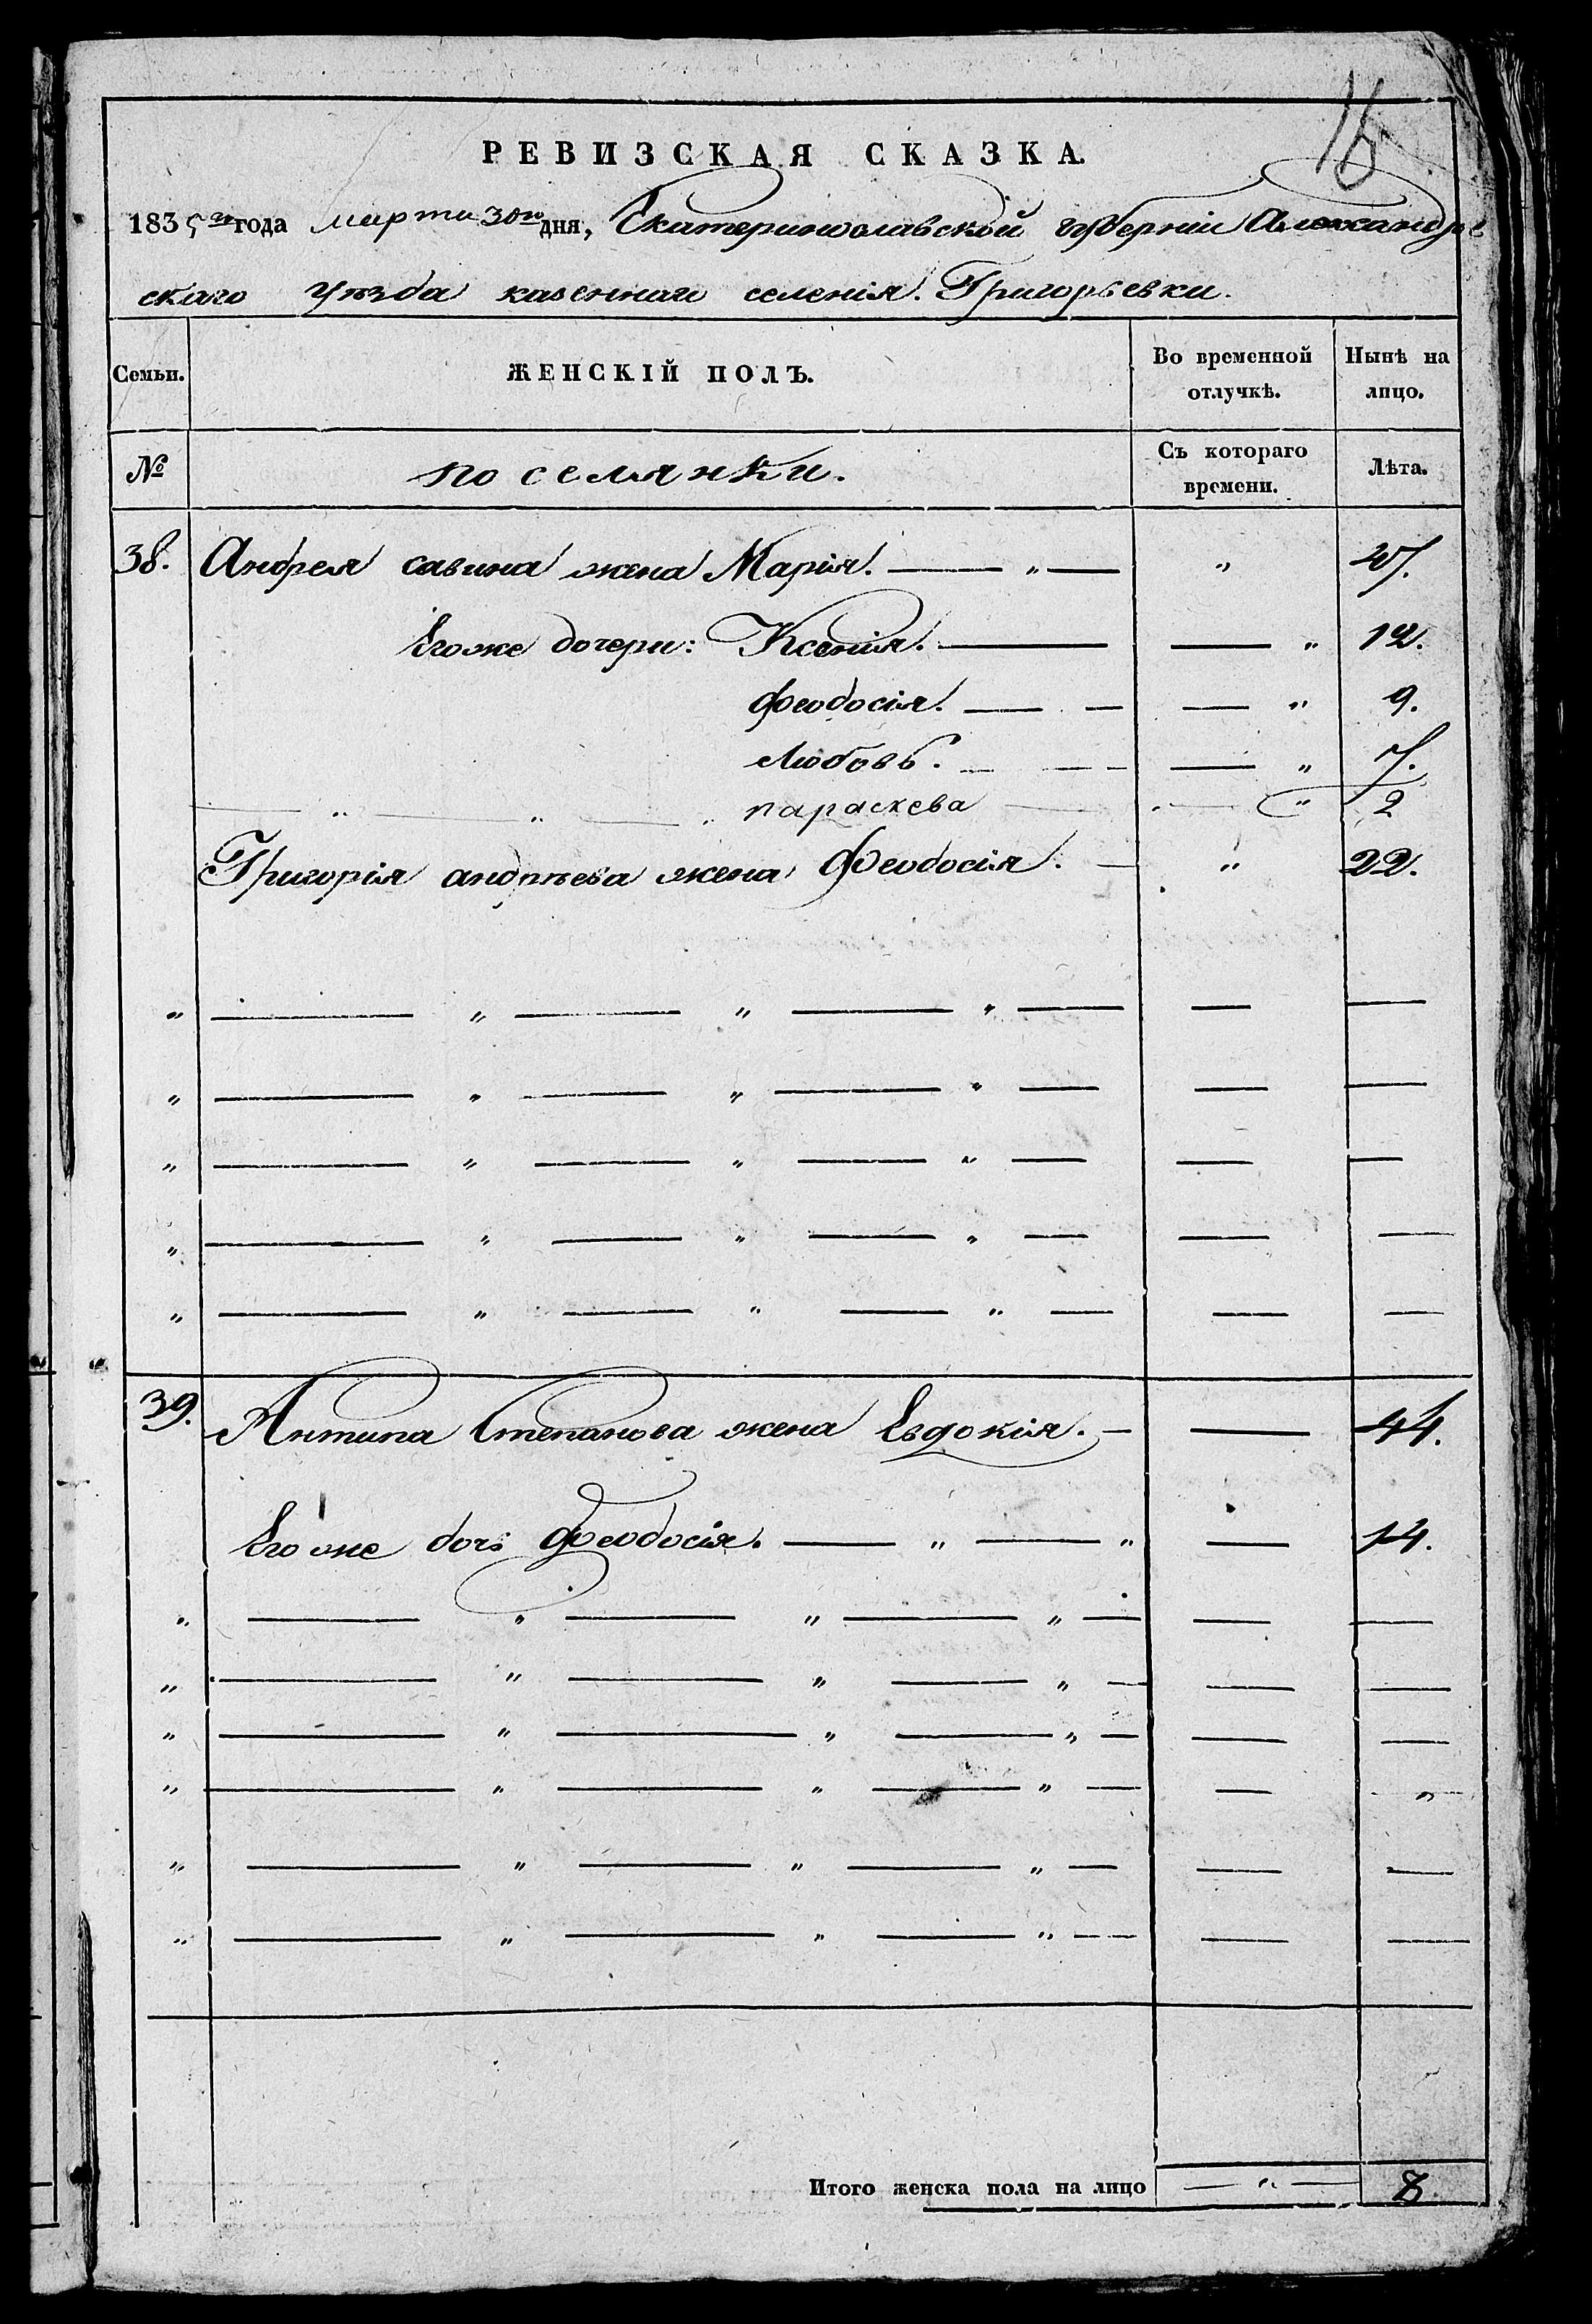 16
РЕВИЗСКАЯ СКАЗКА.
1835 го года марта 30го дня, Екатеринославской губерніи Александров
скаго уѣзда казеннаго селенія Григорьевки.
Семьи. ЖЕНСКІЙ ПОЛЪ. Во временной отлучкѣ. Нынѣ на лицо.
№ поселянки. Съ котораго времени. Лѣта.
38. Андрея савина жена Марія. — „ — „
Егоже дочери: Ксенія. — — „ 12.
Феодосія. — — — „ 9.
Любовь. — — — — „ 7.
— „ — „ — „ параскева — — „ 2
Григорія андрѣева жена Феодосія. — „ 22.
„ — „ — „ — „ — — —
„ — „ — „ — „ — — —
„ — „ — „ — „ — — —
„ — „ — „ — „ — — —
„ — „ — „ — „ — — —
39. Антипа Степанова жена Евдокія. — — 44.
Егоже дочь Феодосія. — „ — „ — 14.
„ — „ — „ — „ — — —
„ — „ — „ — „ — — —
„ — „ — „ — „ — — —
„ — „ — „ — „ — — „
„ — „ — „ — „ — — —
„ — „ — „ — „ — — —
Итого женска пола на лицо — „ — 8